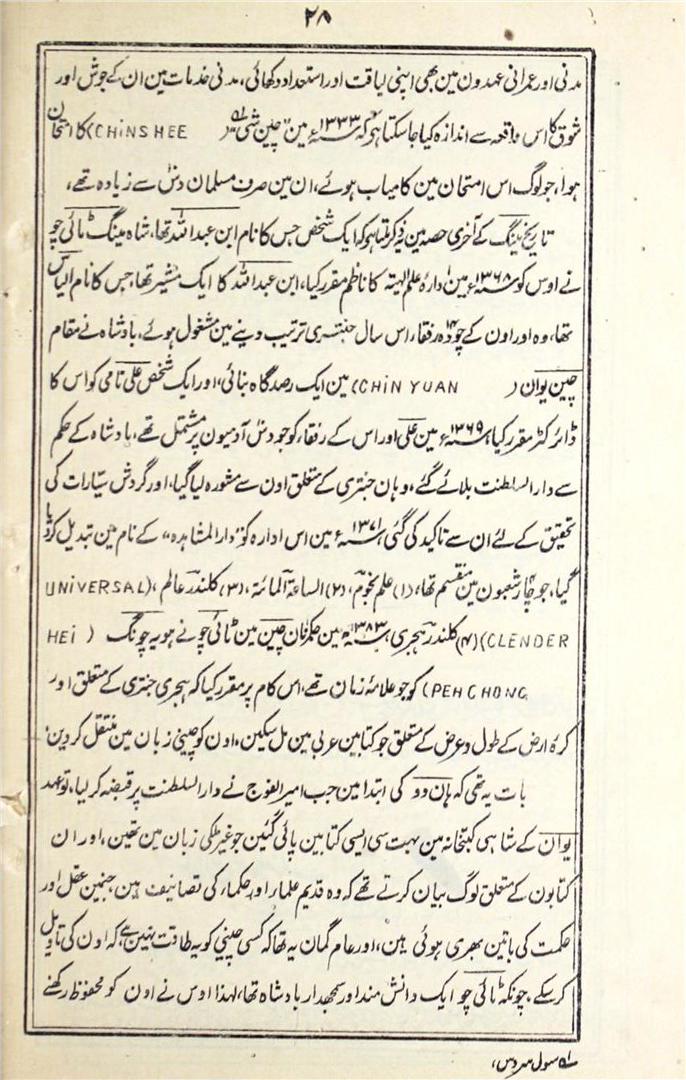 ۲۸
مدنی اور عمرانی عہدون مین بھی اپنی لیاقت اور استعداد دکھائی، مدنی خدمات مین ان کے جوش اور
شوق کا اس واقعہ سے اندازہ کیا جا سکتا ہو کہ ۱۳۳۳ء مین "چین شی" (CHiNSHEE) کا امتحان
ہوا، جو لوگ اس امتحان مین کامیاب ہوئے، ان مین صرف مسلمان دس سے زیادہ تھے،
تاریخ مینگ کے آخری حصہ مین یہ ذکر ملتا ہو کہ ایک شخص جس کا نام ابن عبد اللہ تھا، شاہ مینگ ٹائی چو
نے اوس کو ۱۳۶۸ء مین ادارۂ علم الہیئۃ کا ناظم مقرر کیا، ابن عبد اللہ کا ایک مشیر تھا، جس کا نام الیاس
تھا، وہ اور اون کے چودہ رفقا، اس سال جنتری ترتیب دینے مین مشغول ہوئے، بادشاہ نے مقام
چین یوان (CHiN YUAN) مین ایک رصدگاہ بنائی، اور ایک شخص علی نامی کو اس کا
ڈائرکٹر مقرر کیا، ۱۳۶۹ء مین علی اور اس کے رفقا، کو جو دس آدمیون پر مشتمل تھے، بادشاہ کے حکم
سے دار السلطنت بلائے گئے، وہان جنتری کے متعلق اون سے مشورہ لیا گیا، اور گردش سیّارات کی
تحقیق کے لئے ان سے تاکید کی گئی، ۱۳۷۱ء مین اس ادارہ کو "دار المشاہدہ" کے نام مین تبدیل کر دیا
گیا، جو چار شعبون مین منقسم تھا، (۱) علم نجوم، (۲) الساعۃ المائۃ، (۳) کلندر عالم، (UNiVERSAL
CLENDER) (۴) کلندر ہجری، ۱۳۸۳ء مین حکمران چین مین ٹائی چو نے ہو یہ چونگ (HEi
PEH CHONG) کو جو علامۂ زمان تھے، اس کام پر مقرر کیا کہ ہجری جنتری کے متعلق اور
کرہ ارض کے طول و عرض کے متعلق جو کتابین عربی مین مل سکین، اون کو چینی زبان مین منتقل کر دین،
بات یہ تھی کہ ہان وو کی ابتدا مین جب امیر الفوج نے دار السلطنت پر قبضہ کر لیا، تو عہد
یوان کے شاہی کتبخانہ مین بہت سی ایسی کتابین پائی گئین جو غیر ملکی زبان مین تھین، اور ان
کتابون کے متعلق لوگ بیان کرتے تھے کہ وہ قدیم علماء اور حکماء کی تصانیف ہین جنمین عقل اور
حکمت کی باتین بھری ہوئی ہین، اور عام گمان یہ تھا کہ کسی چینی کو یہ طاقت نہین ہے، کہ اون کی تاویل
کر سکے، چونکہ ٹائی چو ایک دانش مند اور سمجھدار بادشاہ تھا، لہذا اوس نے اون کو محفوظ رکھنے
سول سروس،